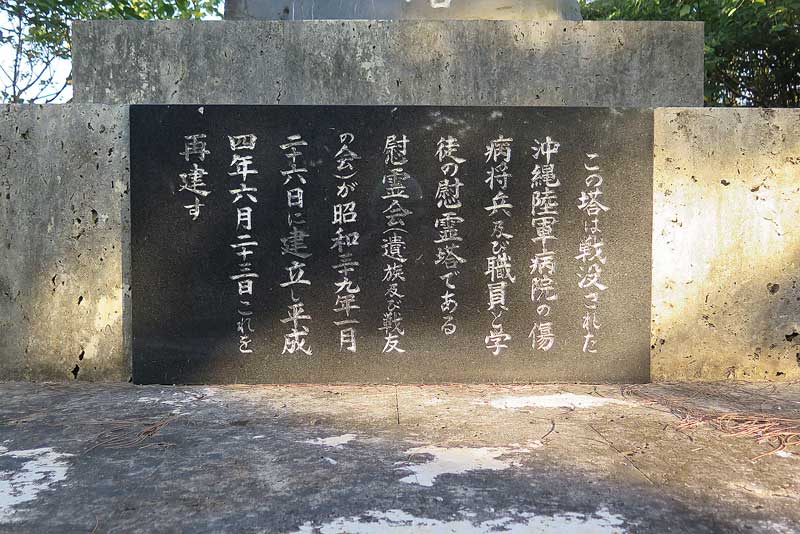 この塔は戦没された
沖縄陸軍病院の傷
病将兵及び職員と学
徒の慰霊塔である
慰霊会(遺族及び戦友
の会)が昭和三十九年一月
二十六日に建立し平成
四年六月二十三日これを
再建す